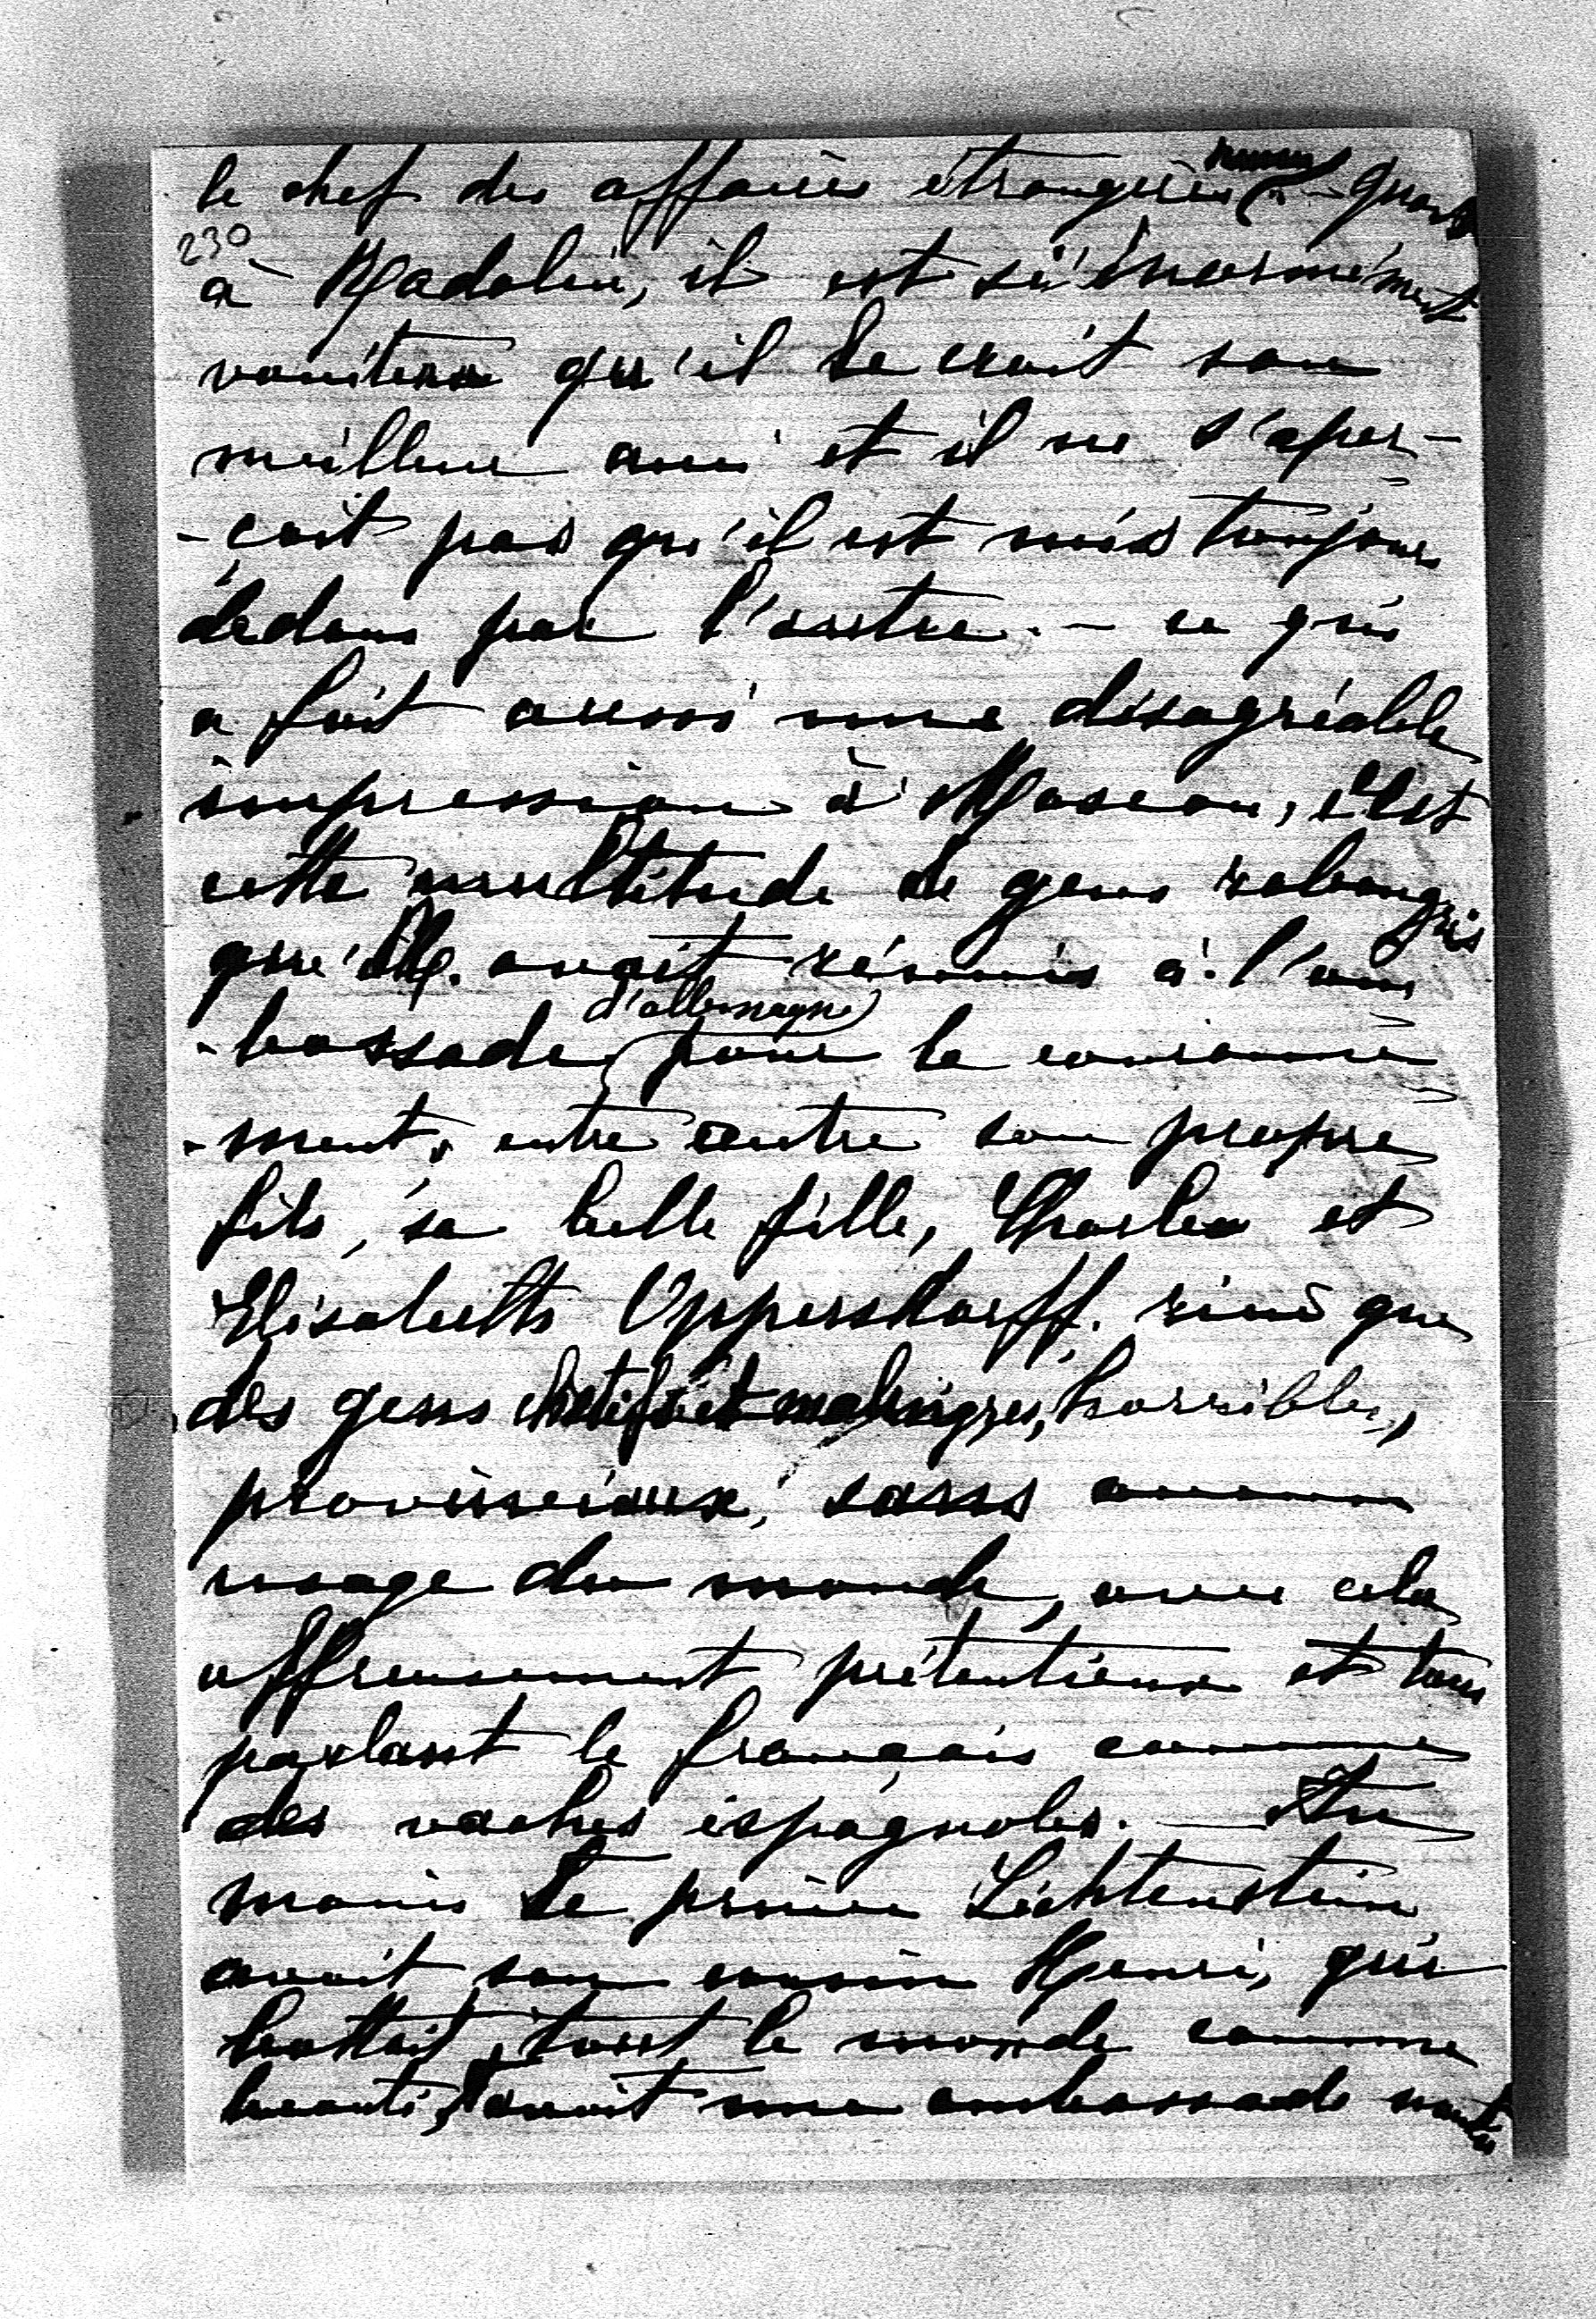 le chef des affaires étrangères russes. - Quant
230
à Radolin, il est si énormément
vaniteux qu'il se croit son
meilleur ami et il ne s'aper-
-çoit pas qu'il est mis toujours
dedans par l'autre. - ce qui
a fait aussi une désagréable
impression à Moscou, c'est
cette multitude de gens rabougris
qu'il avait réunis à l'am
-bassade d'allemagne pour le couronne
-ment, entre autre son propre
fils, sa belle fille, Charles et
Elisabeth Oppersdorff. rien que
des gens chétifs et malingres, horribles,
provinciaux, sans aucun
usage du monde, avec cela
affreusement prétentieux et tous
parlant le français comme
des vaches espagnoles. - Au
moins le prince Lichtenstein
avait son cousin Henri, qui
battait tout le monde comme
beauté, avait une ambassade montée